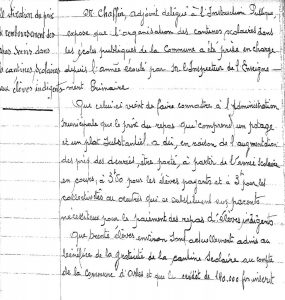 fixation du prix
et remboursement des
repas servis dans
les cantines scolaires
aux élèves indigents
M. Chaffin, adjoint délégué à l'Instruction Publique,
expose que l'organisation des cantines scolaires dans
les écoles publiques de la Commune a été prise en charge
depuis l'année écoulée par M. l'Inspecteur de l'Enseigne
ment Primaire.
Que celui-ci vient de faire connaître à l'Administration
municipale que le prix du repas qui comprend un potage
et un plat substantiel a dû, en raison de l'augmentation
des prix des denrées, être porté, à partir de l'année scolaire
en cours, à 3f50 pour les élèves payants et à 3f pour les
collectivités ou œuvres qui se substituent aux parents
nécessiteux pour le paiement des repas d'élèves indigents
Que trente élèves environ sont actuellement admis au
bénéfice de la gratuité de la cantine scolaire au compte
de la Commune d'Arles et que le crédit de 140.000 fr inscrit